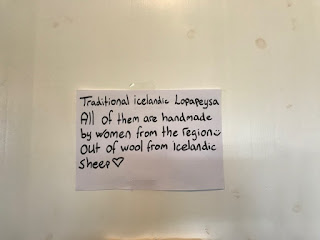 Traditional icelandic Lopapeysa
All of them are handmade
by women from the region:)
out of wool from Icelandic
sheep♡